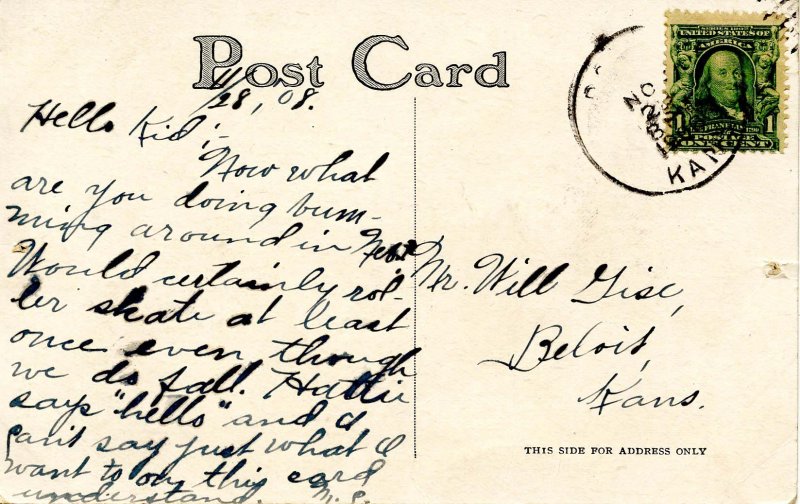 Post Card
11/28, 08.
Hello Kid:-
Now what
are you doing bum-
ming around in Nebr.
Would certainly rol-
ler skate at least
once even though
we do fall. Hattie
says "hello" and I
can't say just what I
want to on this card
understand. M. E.
Mr. Will Gise,
Beloit,
Kans.
THIS SIDE FOR ADDRESS ONLY
NO
28
KAN
SERIES 1902
UNITED STATES OF
AMERICA
FRANKLIN 1790
POSTAGE
1 ONE CENT 1